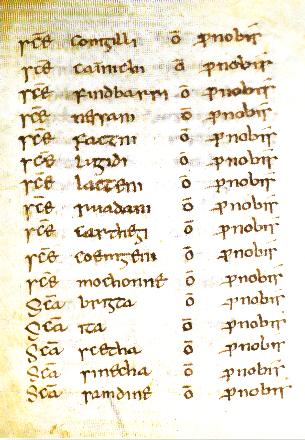 sc̄e comgilli ō ꝓnobis
sc̄e cainichi ō ꝓnobis
sc̄e findbarri ō ꝓnobis
sc̄e nessani ō ꝓnobis
sc̄e factni ō ꝓnobis
sc̄e lugidi ō ꝓnobis
sc̄e lacteni ō ꝓnobis
sc̄e ruadani ō ꝓnobis
sc̄e carthegi ō ꝓnobis
sc̄e coemgeni ō ꝓnobis
sc̄e mochonne ō ꝓnobis
Sc̄a brigta ō ꝓnobis
Sc̄a ita ō ꝓnobis
Sc̄a scetha ō ꝓnobis
Sc̄a sinecha ō ꝓnobis
Sc̄a samdine ō ꝓnobis